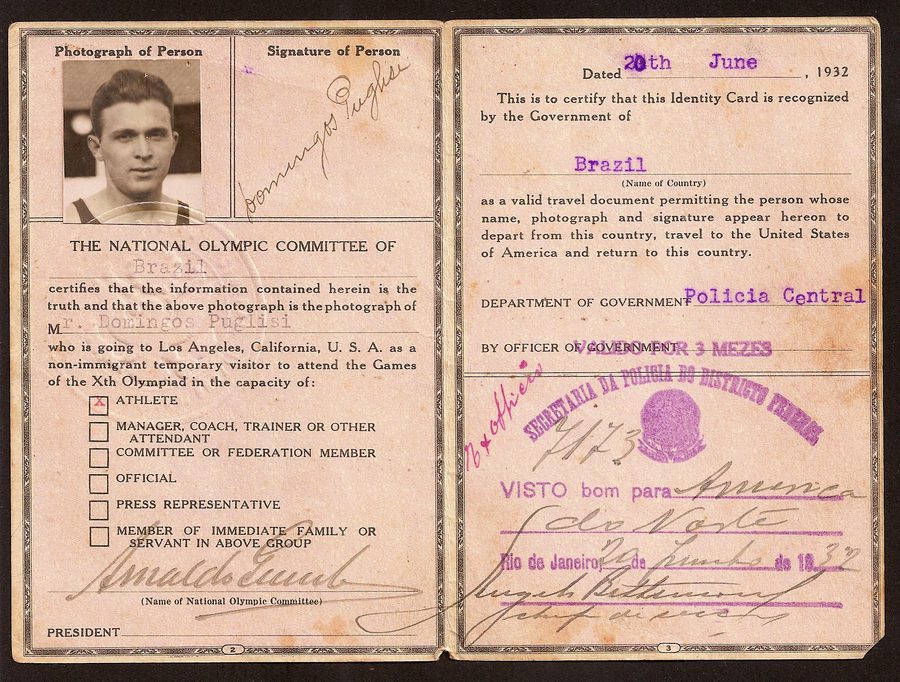 Photograph of Person
Signature of Person
Domingos Puglisi
THE NATIONAL OLYMPIC COMMITTEE OF
Brazil
certifies that the information contained herein is the
truth and that the above photograph is the photograph of
Mr. Domingos Puglisi
who is going to Los Angeles, California, U. S. A. as a
non-immigrant temporary visitor to attend the Games
of the Xth Olympiad in the capacity of:
X ATHLETE
MANAGER, COACH, TRAINER OR OTHER
ATTENDANT
COMMITTEE OR FEDERATION MEMBER
OFFICIAL
PRESS REPRESENTATIVE
MEMBER OF IMMEDIATE FAMILY OR
SERVANT IN ABOVE GROUP
Arnaldo
(Name of National Olympic Committee)
PRESIDENT
2
Dated 20th June, 1932
This is to certify that this Identity Card is recognized
by the Government of
Brazil
(Name of Country)
as a valid travel document permitting the person whose
name, photograph and signature appear hereon to
depart from this country, travel to the United States
of America and return to this country.
DEPARTMENT OF GOVERNMENT Policia Central
BY OFFICER OF GOVERNMENT
VALIDO POR 3 MEZES
SECRETARIA DA POLICIA DO DISTRICTO FEDERAL
7173
VISTO bom para America
do Norte
Rio de Janeiro, 20 de Junho de 1932
3